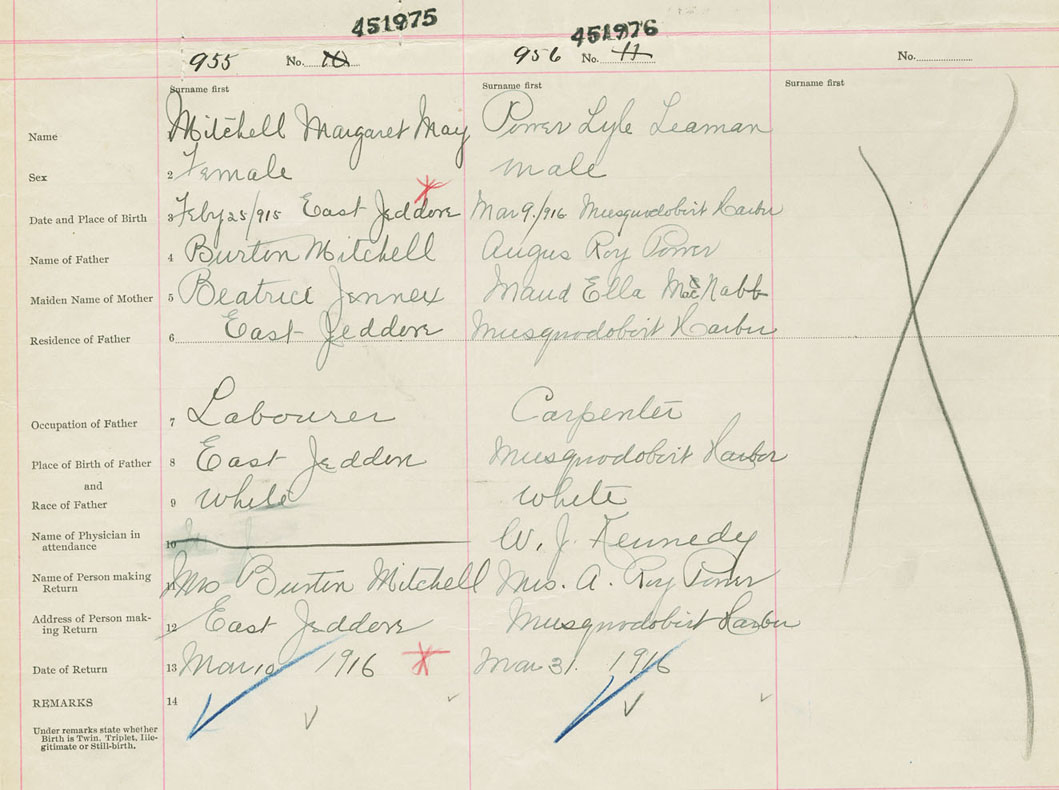 451975 451976
955 No. 10 956 No. 11 No.
Surname first Surname first Surname first
Name Mitchell Margaret May Power Lyle Leaman
Sex 2 Female male
Date and Place of Birth 3 Feby 25/915 East Jeddore Mar 9./916 Musquodobirt Harbor
Name of Father 4 Burton Mitchell Angus Roy Power
Maiden Name of Mother 5 Beatrice Jennex Maud Ella McNabb
Residence of Father 6 East Jeddore Musquodobirt Harbor
Occupation of Father 7 Labourer Carpenter
Place of Birth of Father 8 East Jeddore Musquodobirt Harbor
and
Race of Father 9 White White
Name of Physician in
attendance 10 W. J. Kennedy
Name of Person making
Return 11 Mrs Burton Mitchell Mrs. A. Roy Power
Address of Person mak-
ing Return 12 East Jeddore Musquodobirt Harbor
Date of Return 13 Mar 10 1916 Mar 31. 1916
REMARKS 14
Under remarks state whether
Birth is Twin, Triplet, Ille-
gitimate or Still-birth.